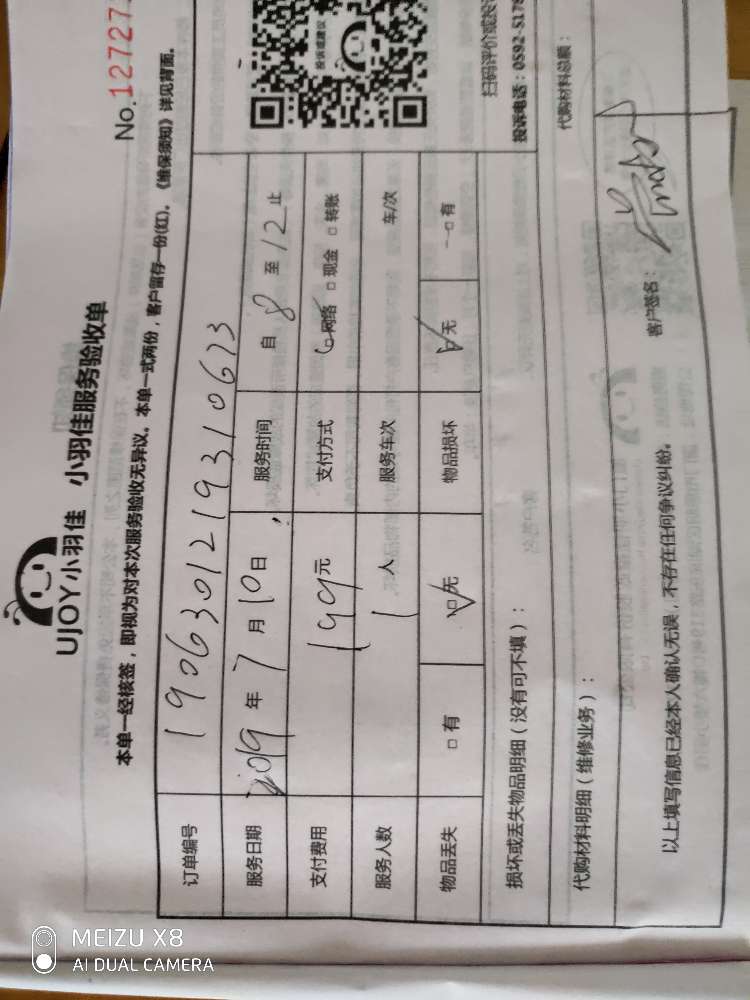 UJOY小羽佳 小羽佳服务验收单
No.12727
本单一经核签，即视为对本次服务验收无异议。本单一式两份，客户留存一份(红)。《维保须知》详见背面。
订单编号 190630121931 0673
服务日期 2019 年 7 月 10 日 服务时间 自 8 至 12 止
支付费用 199元 支付方式 ☑网络 □现金 □转账
服务人数 1 人 服务车次 车/次
物品丢失 □有 ☑无 物品损坏 ☑无 □有
投诉或建议
扫码评价或投
投诉电话：0592-5178
损坏或丢失物品明细（没有可不填）：
代购材料明细（维修业务）： 代购材料总额：
以上填写信息已经本人确认无误，不存在任何争议纠纷。 客户签名：
MEIZU X8
AI DUAL CAMERA